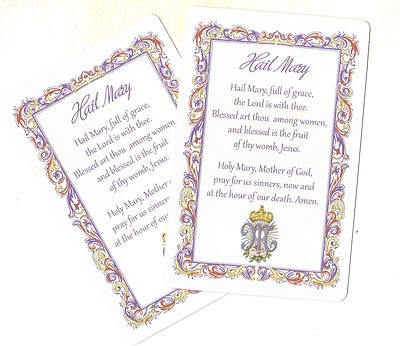 Hail Mary
Hail Mary, full of grace,
the Lord is with thee.
Blessed art thou among women,
and blessed is the fruit
of thy womb, Jesus.
Holy Mary, Mother
pray for us sinners,
at the hour of our
Hail Mary
Hail Mary, full of grace,
the Lord is with thee.
Blessed art thou among women,
and blessed is the fruit
of thy womb, Jesus.
Holy Mary, Mother of God,
pray for us sinners, now and
at the hour of our death. Amen.